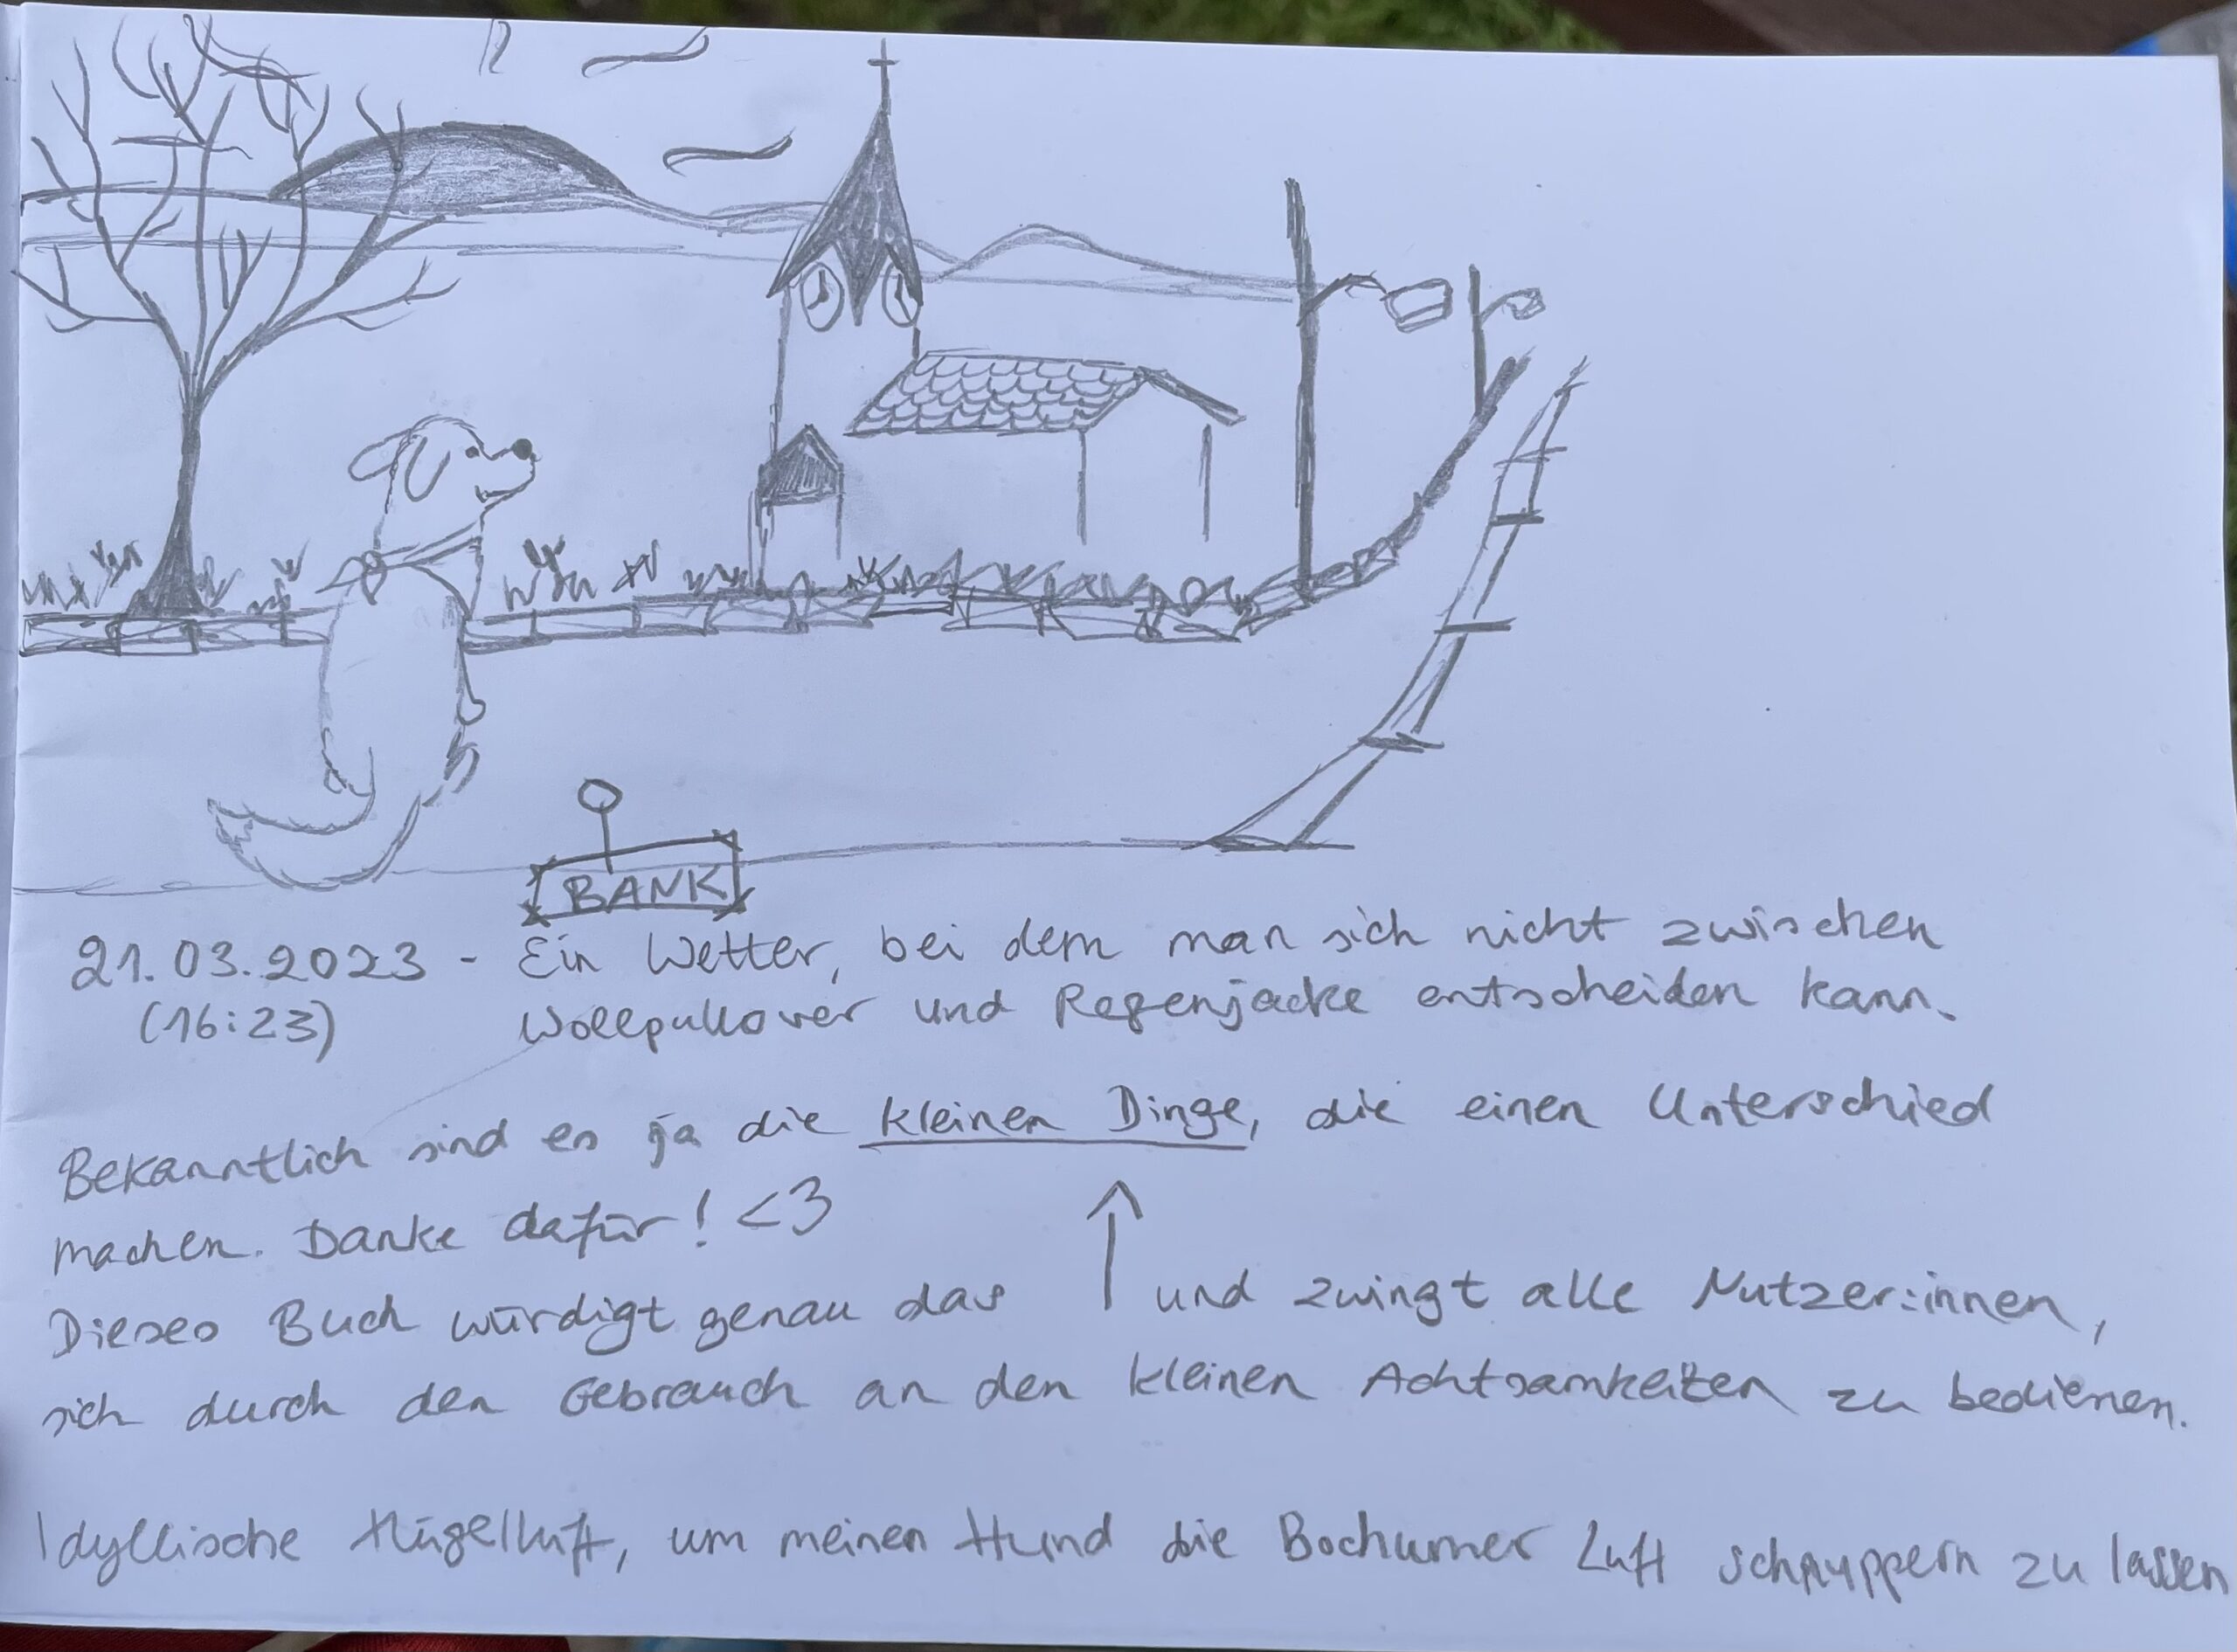 BANK
21.03.2023 - Ein Wetter, bei dem man sich nicht zwischen
(16:23) Wollpullover und Regenjacke entscheiden kann.
Bekanntlich sind es ja die kleinen Dinge, die einen Unterschied
machen. Danke dafür! <3
Dieses Buch würdigt genau das ↑ und zwingt alle Nutzer:innen,
sich durch den Gebrauch an den kleinen Achtsamkeiten zu bedienen.
Idyllische Hügelluft, um meinen Hund die Bochumer Luft schnuppern zu lassen